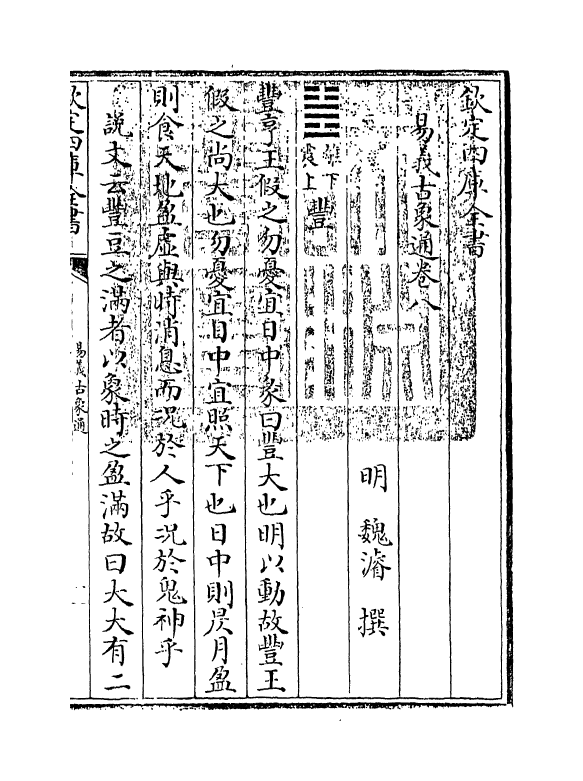 欽定四庫全書
易義古象通卷八
明 魏濬 撰
離下震上 豐
豐亨王假之勿憂宜日中彖曰豐大也明以動故豐王
假之尚大也勿憂宜日中宜照天下也日中則昃月盈
則食天地盈虛與時消息而況於人乎況於鬼神乎
說文云豐豆之滿者以象時之盈滿故曰大大有二
欽定四庫全書
易義古象通